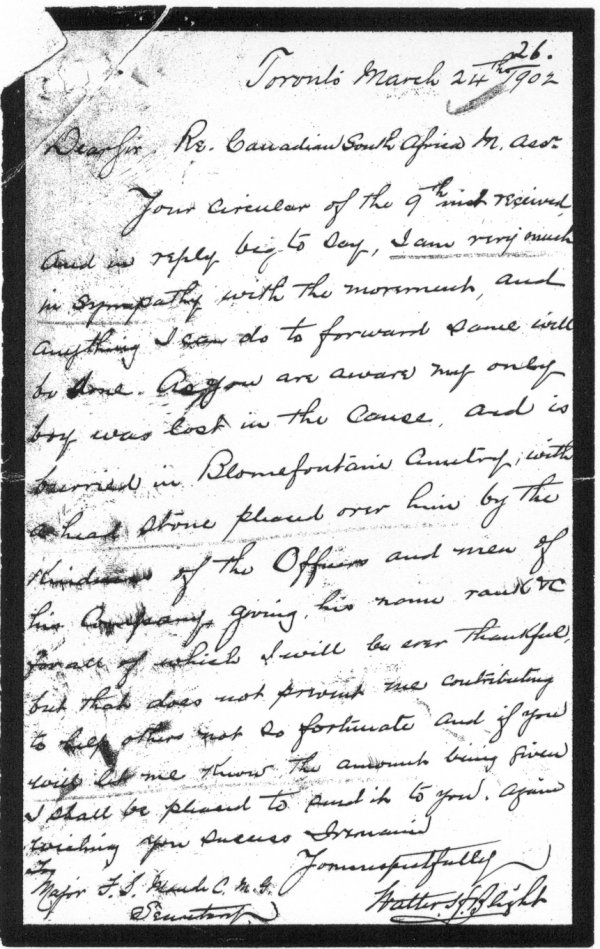 26.
Toronto March 24th 1902
Dear Sir, Re. Canadian South Africa M. Assn.
Your circular of the 9th inst received,
and in reply beg to say, I am very much
in sympathy with the movement, and
anything I can do to forward same will
be done. As you are aware my only
boy was lost in the cause, and is
burried in Blomefontain Cemetry, with
a head stone placed over him by the
Kindness of the Officers and men of
his Company, giving his name rank &c
for all of which I will be ever thankful,
but that does not prevent me contributing
to help others not so fortunate and if you
will let me know the amount being given
I shall be pleased to send it to you. Again
wishing you success I remain
Yours respectfully
To
Major F. S. Maude C. M. G.
Walter H. Blight
Secretary